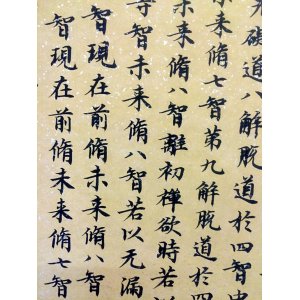 礙道八解脫道於四智
未来脩七智第九解脫道於四
未来脩八智離初禪欲時若以
智未来脩八智若以无漏
智現在前脩未来脩八智
智現在前脩未来脩七智